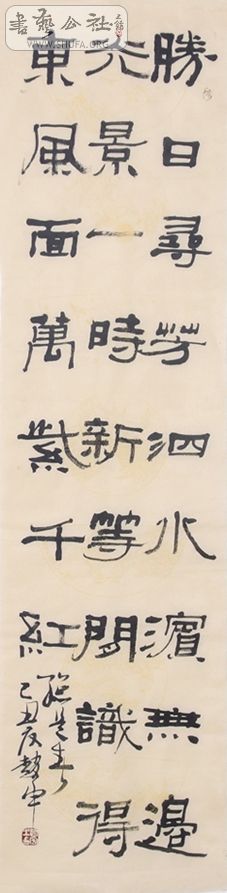 書藝公社
WWW.SHUFA.ORG
勝日尋芳泗水濱無邊
光景一時新等間識得
東風面萬紫千紅
總是春
己丑